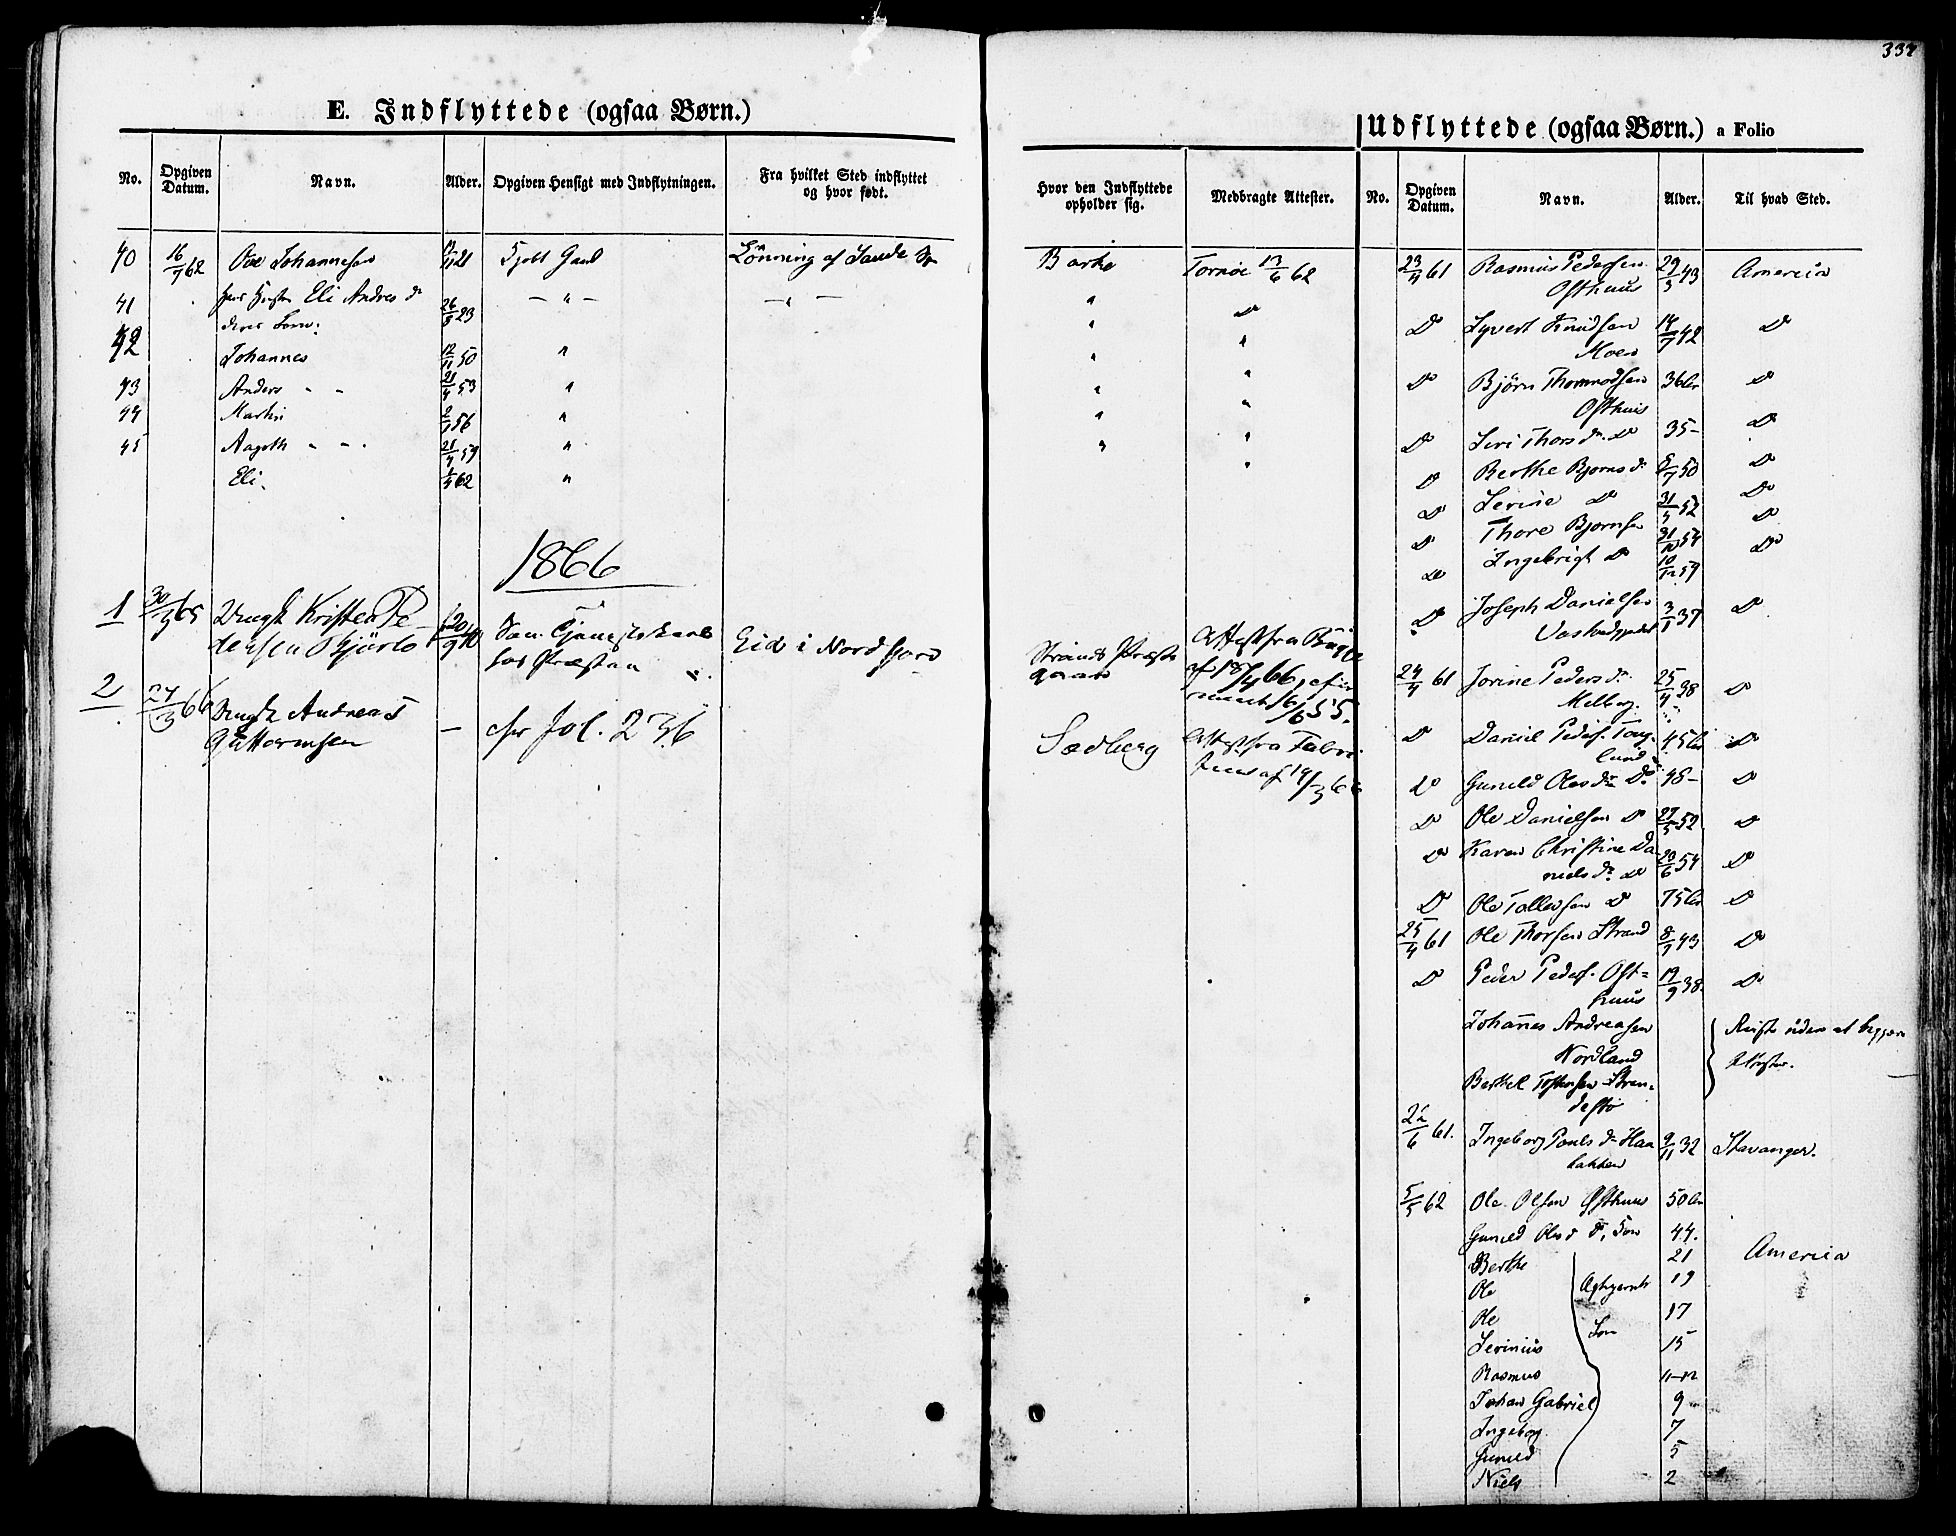 334
E. Indflyttede (ogsaa Børn.)
No. Opgiven Datum. Navn. Alder. Opgiven Hensigt med Indflytningen. Fra hvilket Sted indflyttet og hvor født.
Hvor den Indflyttede opholder sig. Medbragte Attester.
40 16/7 62 Ove Johannesen 21 Kjøbt Gaard Lönning af Sande
Barke Tornøe 13/6 62
41 Eli Andres dr 26/8 23 - " - - " -
" Do
42 Johannes 12/11 50 "
43 Anders " " 21/4 53 "
44 Martin 2/1 56 "
45 Aagoth " " 21/4 59 "
Eli. 1/4 62 "
1866
1 30/3 65 Ungk Kristen Pe-
dersen 20/9 40 Som Tjenestekarl
hos Præsten
Eid i Nordfjord
Strands Præste
gaard
Attest fra
af 18/4 66,
16/6 55.
2 27/3 66 Ungk Andreas
Guttormsen - cfr fol. 236
Sædberg Attest fra
af 19/3 66
Udflyttede (ogsaa Børn.) a Folio
No. Opgiven Datum. Navn. Alder. Til hvad Sted.
23/4 61 Rasmus Pedersen 29/3 43 America
Osthuus
Do Syvert Knudsen 14/7 42 Do
Moen
Do Björn Thormodsen 36 Do
Osthuus
Do Siri Thors dr. Do 35 - Do
Do Berthe Bjorns dr 8/7 50 Do
Do Serine Do 31/4 52 Do
Do Thore Bjornsen 31/10 54 Do
Do Ingebrigt Do 10/12 59 Do
Do Joseph Danielsen 3/1 37 Do
24/4 61 Jorine Peders dr. 25/4 38 Do
Melberg.
Do Daniel Peders. Tong- 45 Do
land
Do Guneld Oles dr Do 48 - Do
Do Ole Danielsen Do 27/5 52 Do
Do Karen Christine Da-
niels dr. Do 20/6 54 Do
Do Ole Tollevsen Do 75 Do
25/4 61 Ole Thorsen Strand 8/7 43 Do
Do Peder Peders. Ost=
huus 19/9 38. Do
Johannes Andreasen
Nordland
Reiste uden at begjære
Attester.
Berthel Tostensen Stran-
destø
22/6 61. Ingeborg Pouls dr 9/11 32 Stavanger.
5/5 62 Ole Olsen Østhuus 50
Guneld Oles dr 44.
Berthe 21 America
Ole 19
Ole 17
Serinius 15
Rasmus 11-12
Johan Gabriel 9
Ingeborg. 7
Guneld 5
Niels 2